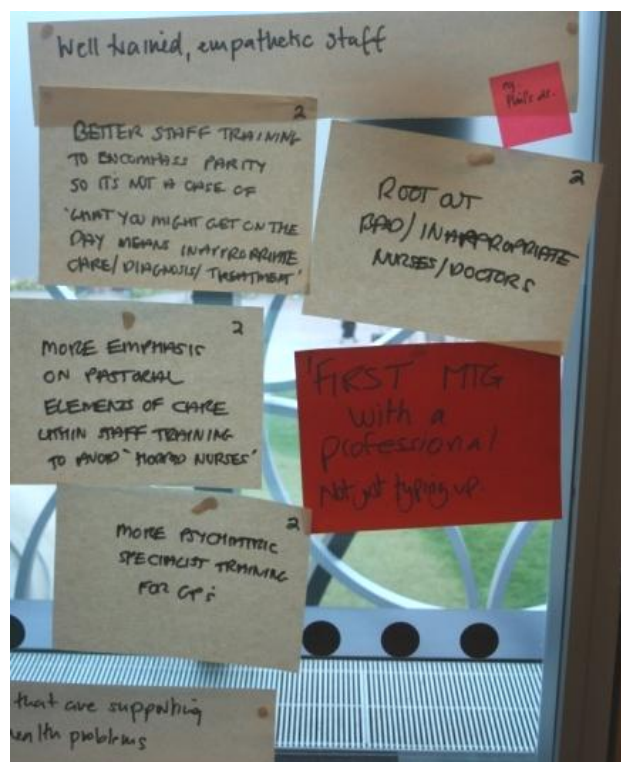 Well trained, empathetic staff
eg.
2
BETTER STAFF TRAINING
TO ENCOMPASS PARITY
SO IT'S NOT A CASE OF
'WHAT YOU MIGHT GET ON THE
DAY MEANS INAPPROPRIATE
CARE/DIAGNOSIS/TREATMENT'
2
ROOT OUT
BAD/INAPPROPRIATE
NURSES/DOCTORS
2
MORE EMPHASIS
ON PASTORAL
ELEMENTS OF CARE
WITHIN STAFF TRAINING
TO AVOID 'HORRID NURSES'
'FIRST' MTG
with a
professional
Not just typing up.
2
MORE PSYCHIATRIC
SPECIALIST TRAINING
FOR GPs
that are supporting
health problems